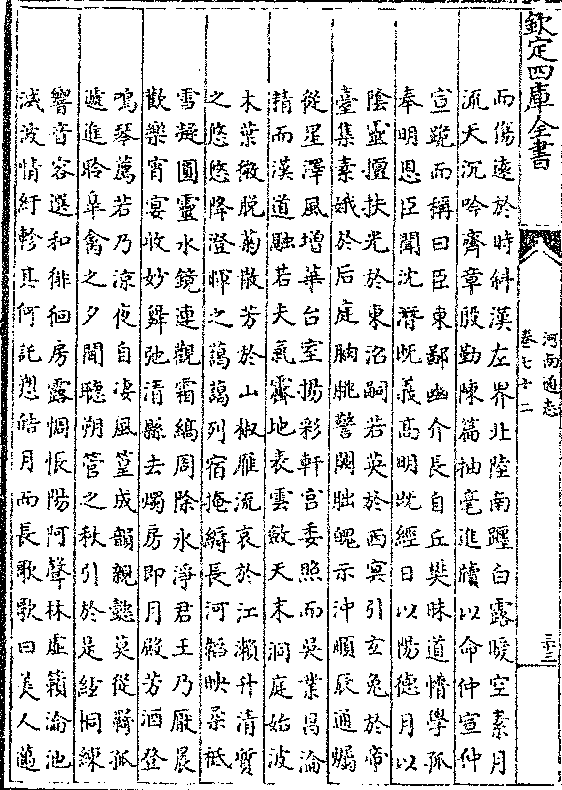 欽定四庫全書
河南通志
卷七十二
三十三
而傷遠於時斜漢左界北陸南躔白露曖空素月
流天沉吟齊章殷勤陳篇抽毫進牘以命仲宣仲
宣跪而稱曰臣東鄙幽介長自丘樊昧道懵學孤
奉明恩臣聞沈潛既義高明既經日以陽德月以
陰靈擅扶光於東沼嗣若英於西冥引玄兔於帝
臺集素娥於后庭朒朓警闕朏魄示沖順辰通燭
從星澤風增華台室揚彩軒宮委照而吳業昌淪
精而漢道融若夫氣霽地表雲斂天末洞庭始波
木葉微脫菊散芳於山椒雁流哀於江瀨升清質
之悠悠降澄暉之藹藹列宿掩縟長河韜映柔祗
雪凝圓靈水鏡連觀霜縞周除冰淨君王乃厭晨
歡樂宵宴收妙舞弛清縣去燭房即月殿芳酒登
鳴琴薦若乃涼夜自凄風篁成韻親懿莫從羇孤
遞進聆臯禽之夕聞聽朔管之秋引於是絃桐練
響音容選和徘徊房露惆悵陽阿聲林虛籟淪池
滅波情紆軫其何託愬皓月而長歌歌曰美人邁